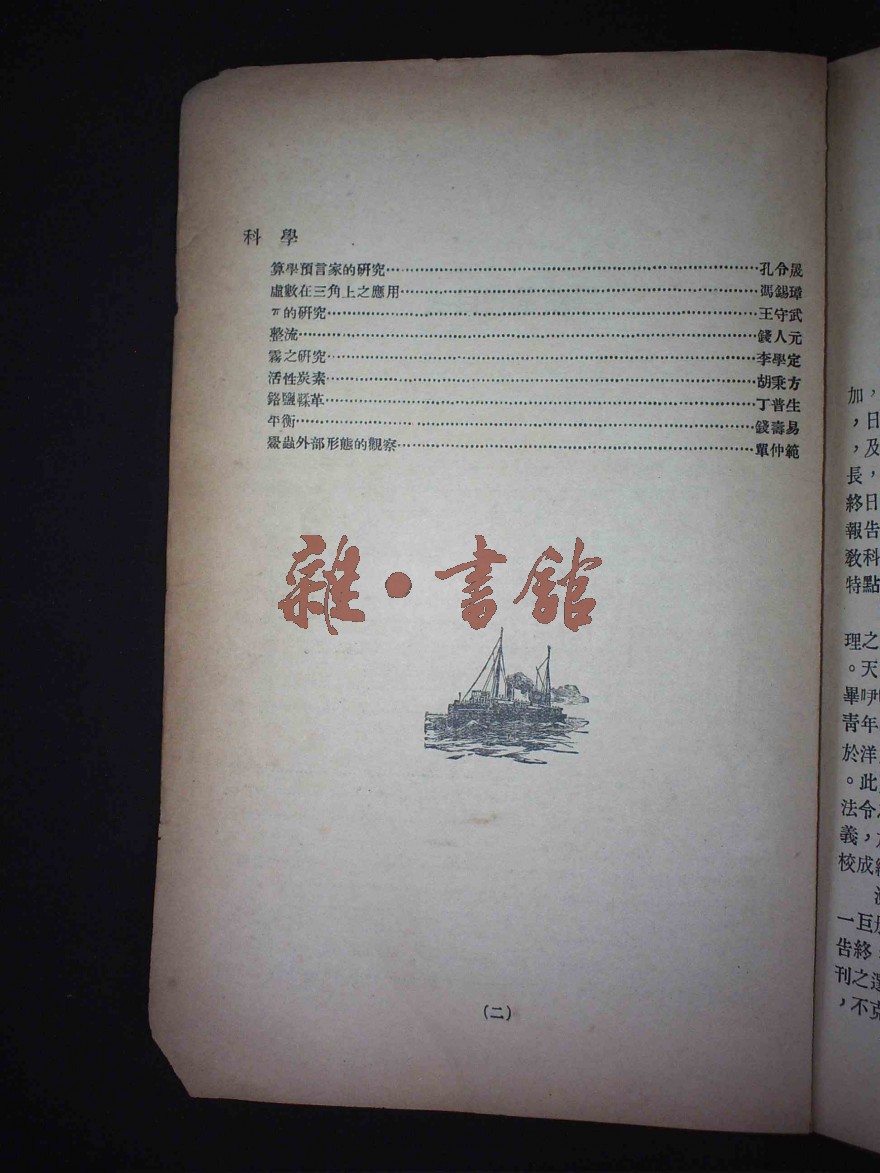 科學
算學預言家的研究孔令晟
虛數在三角上之應用馮錫璋
π的研究王守武
整流錢人元
霧之研究李學定
活性炭素胡秉方
鉻鹽鞣革丁普生
平衡錢壽易
蠶蟲外部形態的觀察單仲範
雜·書舘
(二)
加，
，日
，及
長，
終日
報告
敎科
特點
理之
。天
畢呼
靑年
於洋
。此
法令
義，
校成
一巨
告終
刊之
，不克